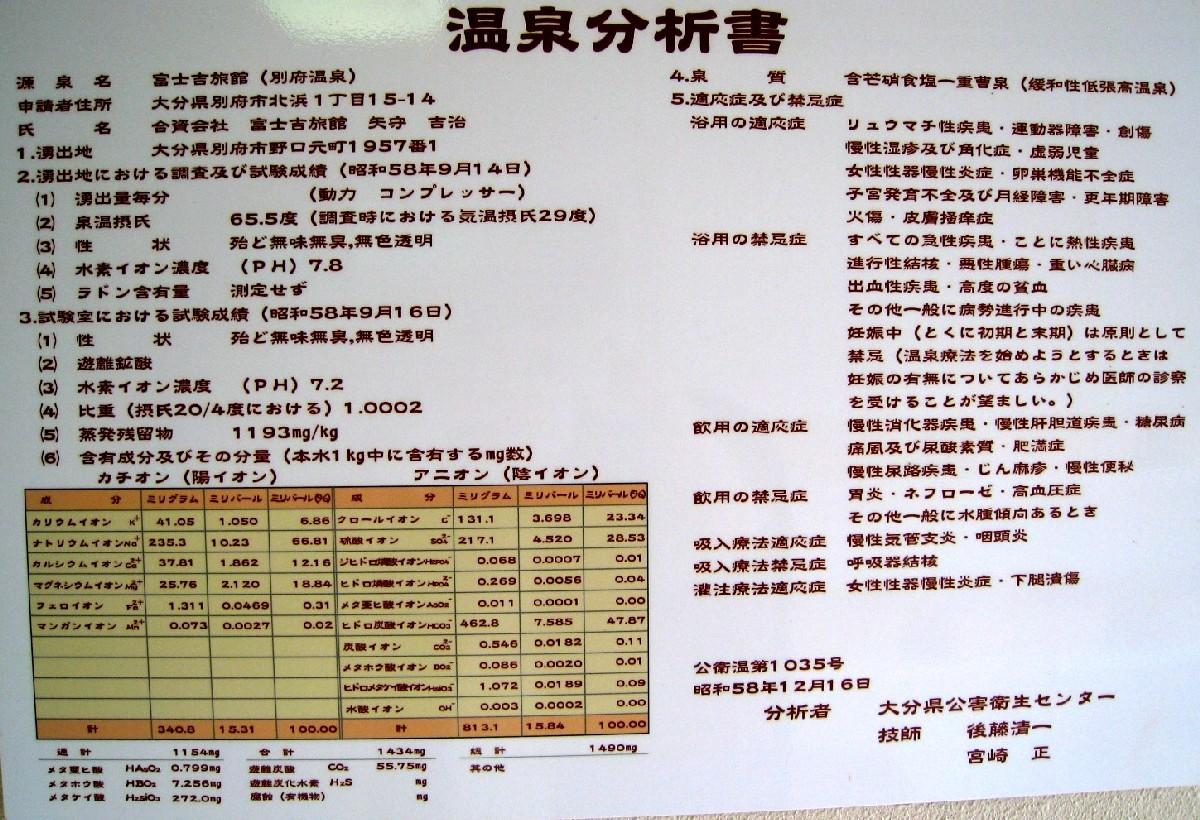 温泉分析書
源泉名 富士吉旅館（別府温泉）
申請者住所 大分県別府市北浜1丁目15-14
氏名 合資会社 富士吉旅館 矢守 吉治
1.湧出地 大分県別府市野口元町1957番1
2.湧出地における調査及び試験成績（昭和58年9月14日）
(1) 湧出量毎分 （動力 コンプレッサー）
(2) 泉温摂氏 65.5度（調査時における気温摂氏29度）
(3) 性状 殆ど無味無臭,無色透明
(4) 水素イオン濃度 （PH）7.8
(5) ラドン含有量 測定せず
3.試験室における試験成績（昭和58年9月16日）
(1) 性状 殆ど無味無臭,無色透明
(2) 遊離鉱酸
(3) 水素イオン濃度 （PH）7.2
(4) 比重（摂氏20/4度における）1.0002
(5) 蒸発残留物 1193mg/kg
(6) 含有成分及びその分量（本水1kg中に含有するmg数）
カチオン（陽イオン） アニオン（陰イオン）
成分 ミリグラム ミリバール ミリバール(%) 成分 ミリグラム ミリバール ミリバール(%)
カリウムイオン K+ 41.05 1.050 6.86 クロールイオン C- 131.1 3.698 23.34
ナトリウムイオン Na+ 235.3 10.23 66.81 硫酸イオン SO4 2- 217.1 4.520 28.53
カルシウムイオン Ca2+ 37.81 1.862 12.16 ジヒドロ燐酸イオン 0.068 0.0007 0.01
マグネシウムイオン Mg2+ 25.76 2.120 18.84 ヒドロ燐酸イオン 0.269 0.0056 0.04
フェロイオン Fe2+ 1.311 0.0469 0.31 メタ亜ヒ酸イオン AsO2- 0.011 0.0001 0.00
マンガンイオン Mn2+ 0.073 0.0027 0.02 ヒドロ炭酸イオン HCO3- 462.8 7.585 47.87
炭酸イオン CO3 2- 0.546 0.0182 0.11
メタホウ酸イオン BO2- 0.086 0.0020 0.01
ヒドロメタケイ酸イオン HSiO3- 1.072 0.0189 0.09
水酸イオン OH- 0.003 0.0002 0.00
計 340.8 15.31 100.00 計 813.1 15.84 100.00
通計 1154mg 合計 1434mg 総計 1490mg
メタ亜ヒ酸 HAsO2 0.799mg 遊離炭酸 CO2 55.75mg 其の他
メタホウ酸 HBO2 7.256mg 遊離炭化水素 H2S mg
メタケイ酸 H2SiO3 272.0mg 腐蝕（有機物） mg
4.泉質 含芒硝食塩一重曹泉（緩和性低張高温泉）
5.適応症及び禁忌症
浴用の適応症 リュウマチ性疾患・運動器障害・創傷
慢性湿疹及び角化症・虚弱児童
女性性器慢性炎症・卵巣機能不全症
子宮発育不全及び月経障害・更年期障害
火傷・皮膚掻痒症
浴用の禁忌症 すべての急性疾患・ことに熱性疾患
進行性結核・悪性腫瘍・重い心臓病
出血性疾患・高度の貧血
その他一般に病勢進行中の疾患
妊娠中（とくに初期と末期）は原則として
禁忌（温泉療法を始めようとするときは
妊娠の有無についてあらかじめ医師の診察
を受けることが望ましい。）
飲用の適応症 慢性消化器疾患・慢性肝胆道疾患・糖尿病
痛風及び尿酸素質・肥満症
慢性尿路疾患・じん麻疹・慢性便秘
飲用の禁忌症 胃炎・ネフローゼ・高血圧症
その他一般に水腫傾向あるとき
吸入療法適応症 慢性気管支炎・咽頭炎
吸入療法禁忌症 呼吸器結核
灌注療法適応症 女性性器慢性炎症・下腿潰傷
公衛温第1035号
昭和58年12月16日
分析者 大分県公害衛生センター
技師 後藤清一
宮崎 正